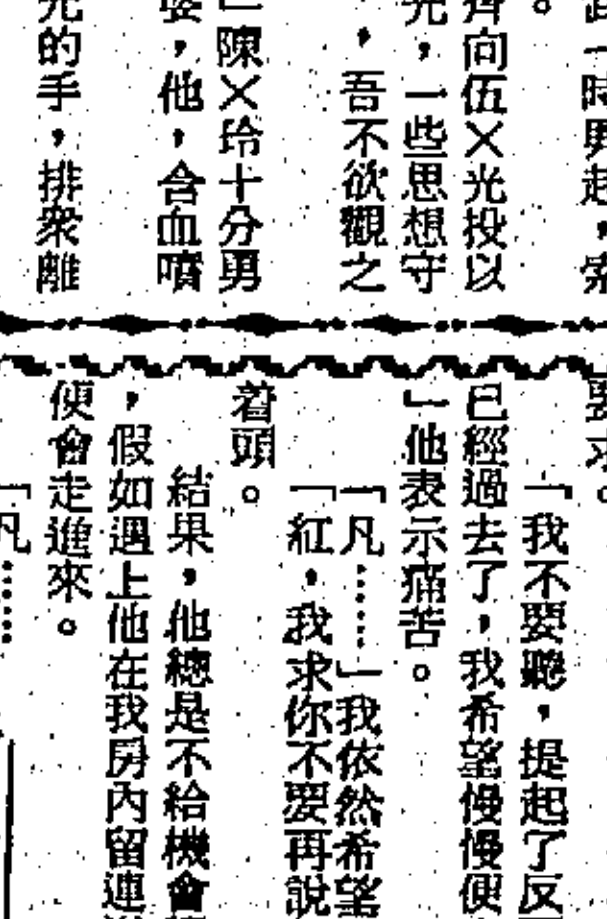 時興起，索
。
齊向伍×光投以
光，一些思想守
，吾不欲觀之
」陳×玲十分勇
，他，含血噴
光的手，排衆離
要求。
「我不要聽，提起了反
已經過去了，我希望慢慢便
」他表示痛苦。
「凡……」我依然希望
「紅，我求你不要再說
着頭。
結果，他總是不給機會
，假如遇上他在我房內留連
便會走進來。
「凡……